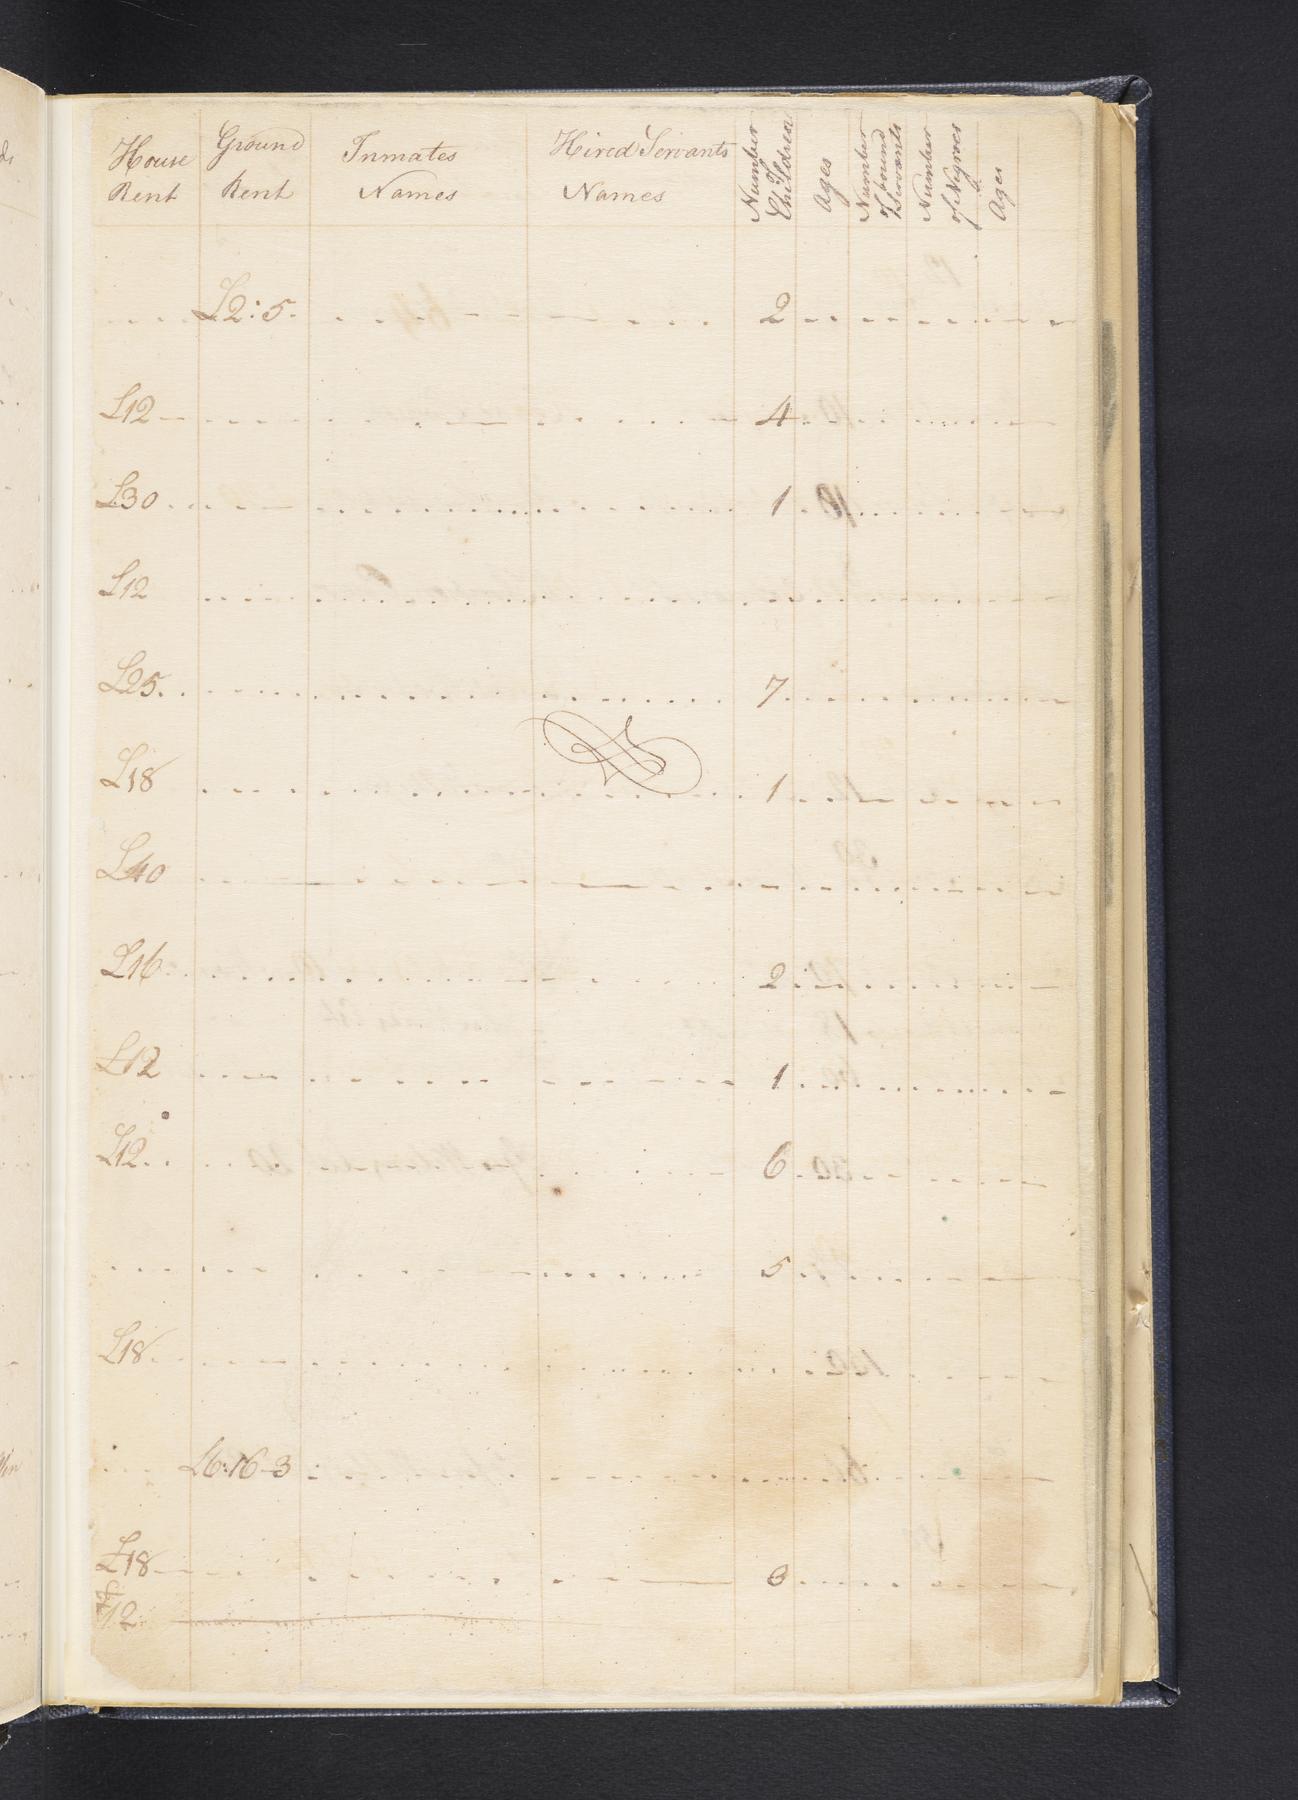 House Rent
Ground Rent
Inmates Names
Hired Servants Names
Number of Children
Ages
Number of bound Servants
Number of Negroes &
Ages
£2:5. 2
£12 4
£30 1
£12
£25 7
£18 1
£40
£16 2
£12 1
£12 6
5
£18
£6:16-3
£18 0
£12